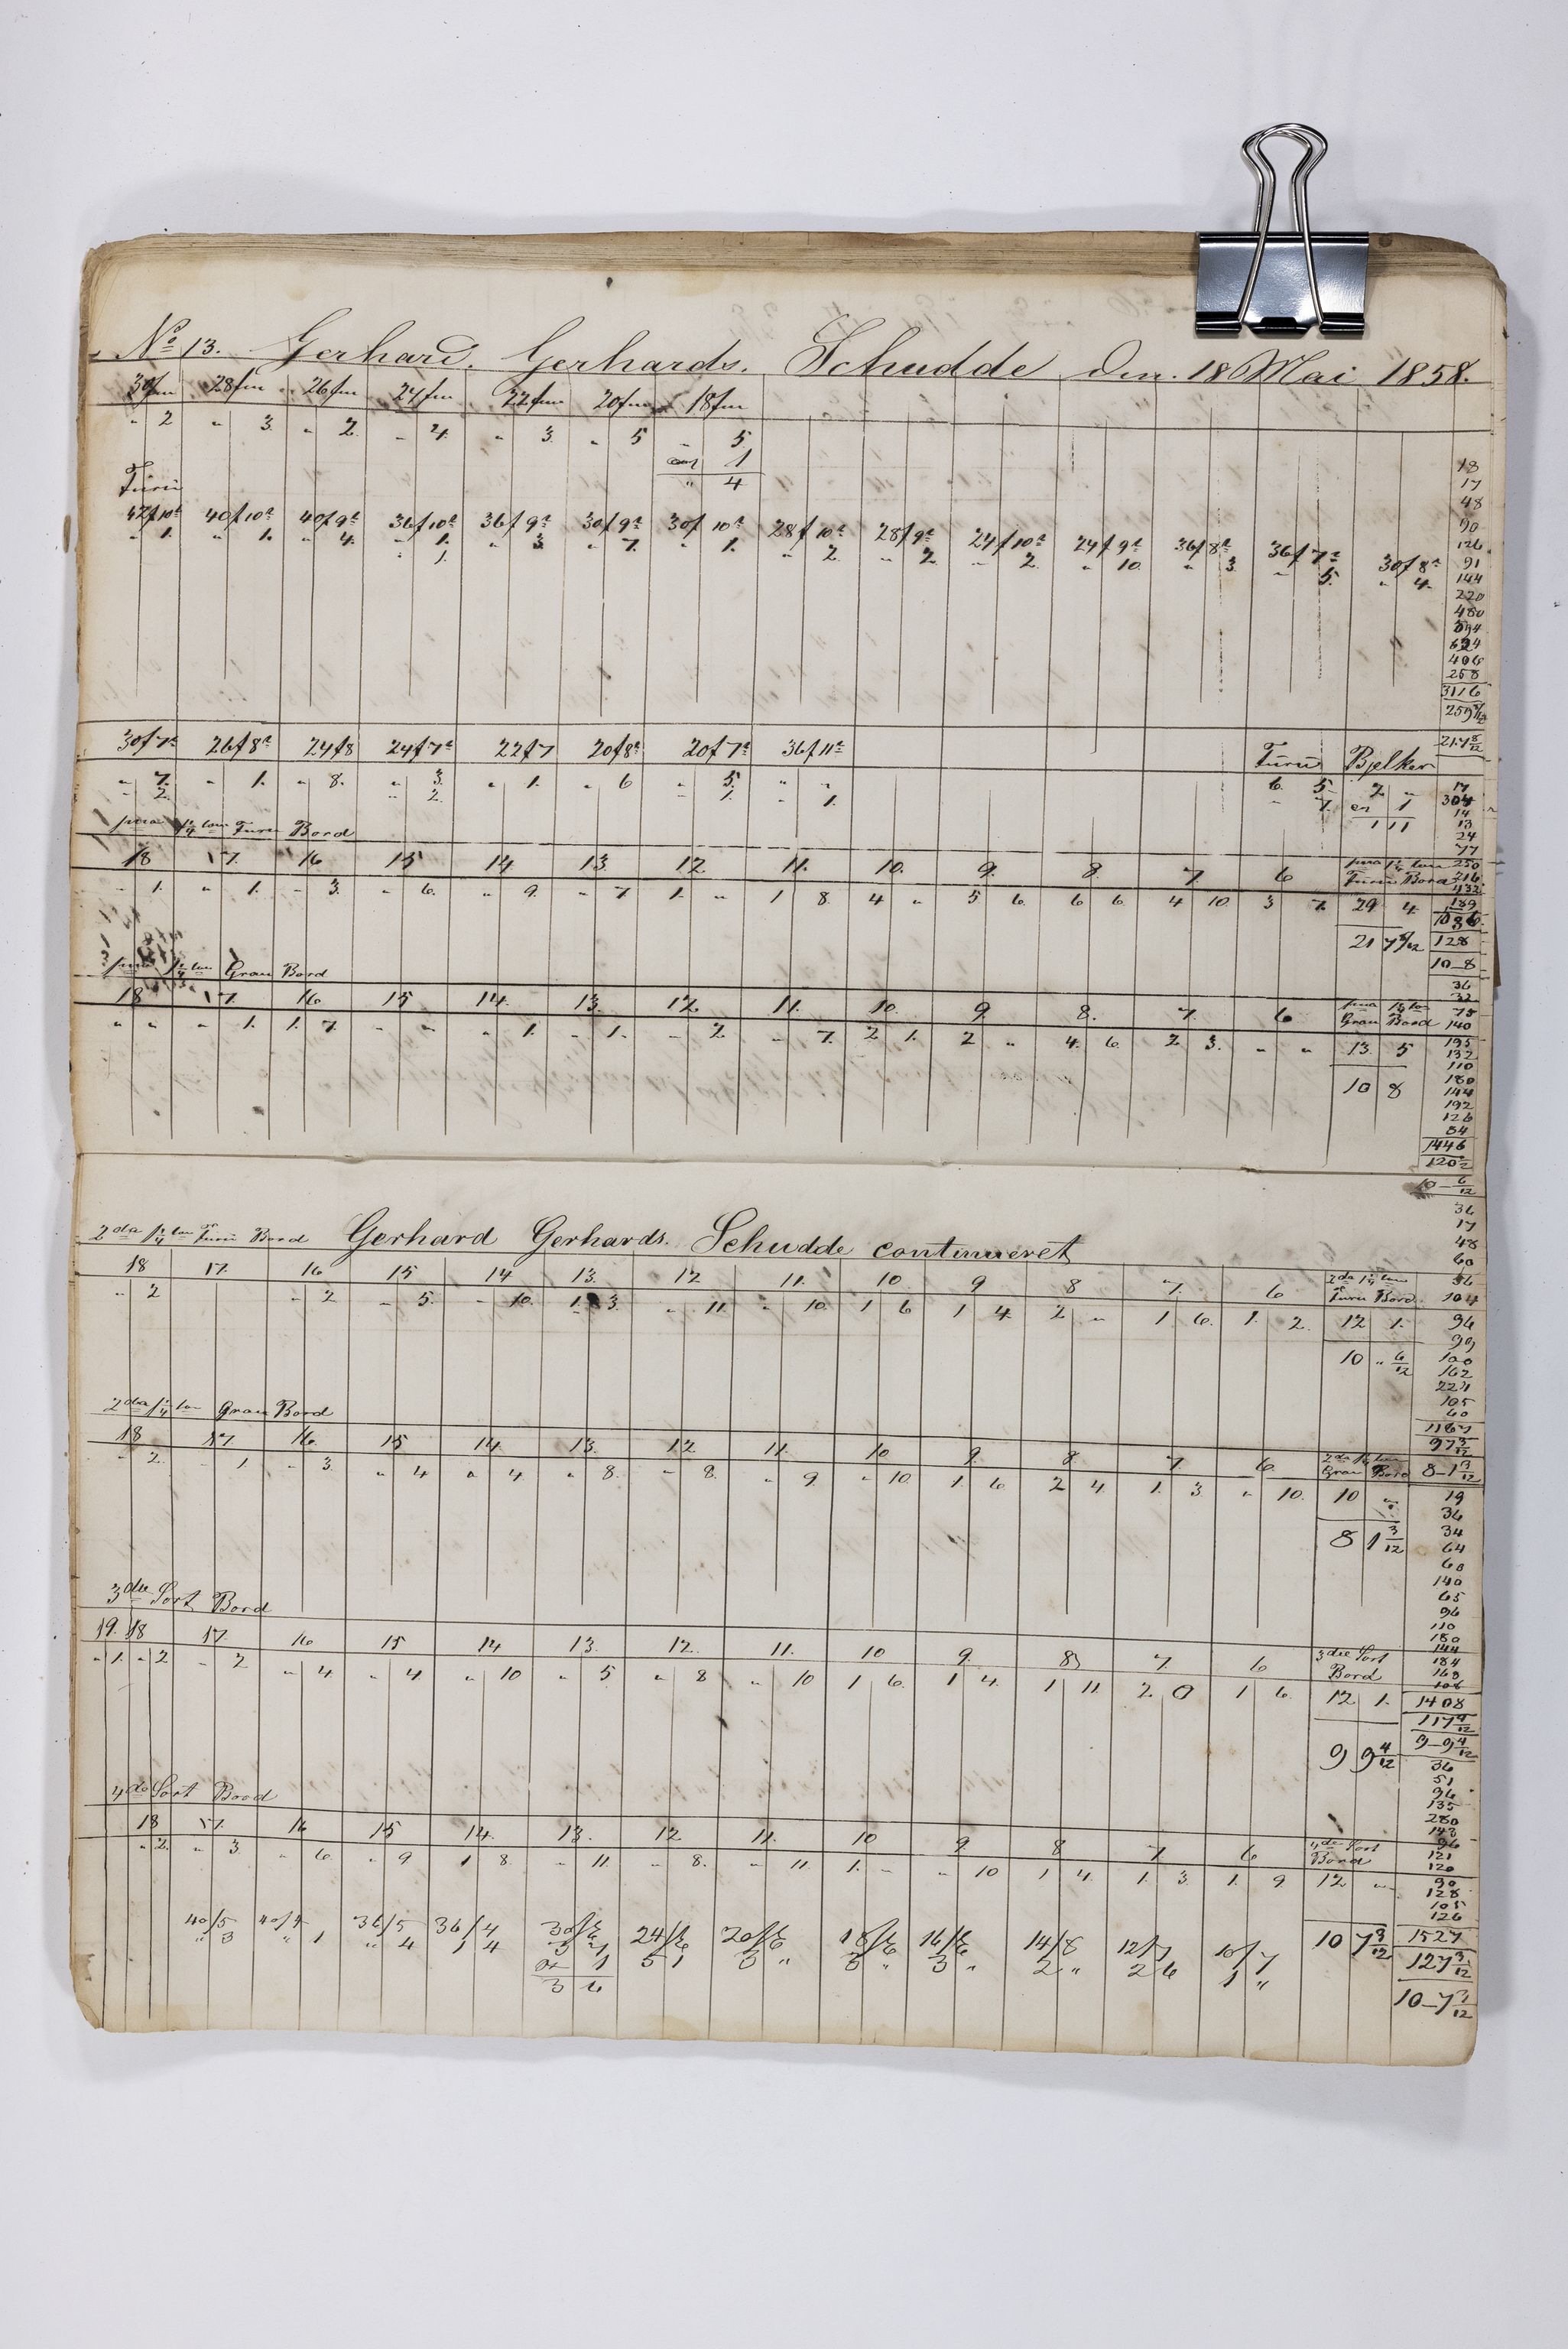 No 13. Gerhard. Gerhards. Schudde Den. 18 Mai 1858.
30fm 28fm 26fm 24fm 22fm 20fm 18fm
" 2 " 3. " 2. " 4. " 3. " 5 " 5
1
" 4
Furu
42f10a 40f10a 40f9a 36f10a 36f9a 30f9a 30f10a 28f10a 28f9a 24f10a 24f9a 36f8a 36f7a 30f8a
" 1. " 1. " 4. " 1. " 3. " 7. " 1. " 2. " 2. " 2. " 10. " 3. " 5. " 4.
" 1.
18
17
48
90
126
91
144
220
480
594
624
406
258
3116
259 8/12
21.7 8/12
30f7a 26f8a 24f8 24f7a 22f7 20f8a 20f7a 36f11a Furu Bjelker
" 7. " 1. " 8. " 3. " 1. " 6 " 5. " " 6 5. 2 "
" 2. " 2. " 1. " 1. " 7. 1
1 11
prima 1 1/4 tom Furu Bord
18 17. 16 15 14 13 12. 11. 10. 9. 8. 7. 6 prima 1 1/4 tom Furu Bord
" 1. " 1. " 3. " 6. " 9. " 7. 1. " 1 8. 4 " 5 6. 6 6. 4 10. 3 7. 29 4.
21 7 8/12
17
304
14
13
24
77
250
216
432
189
128
10_8
prima 1 1/4 tom Gran Bord
18 17. 16 15 14. 13. 12. 11. 10. 9. 8. 7. 6 prima 1 1/4 tom Gran Bord
" " " 1. 1. 7. " " " 1. " 1. " 2. " 7. 2 1. 2 " 4. 6. 2 3. " " 13. 5
10 8
36
32
75
140
195
132
110
180
144
192
126
84
1446
120 6/12
10_ 6/12
2da 1 1/4 tom Furu Bord Gerhard Gerhards. Schudde continueret
18 17. 16 15 14 13. 12 11. 10 9 8 7. 6 2da 1 1/4 tom Furu Bord.
" 2 " 2 " 5. " 10. 1. 3. " 11. " 10. 1 6 1 4. 2 " 1 6. 1. 2. 12 1.
10 " 6/12
36
17
48
60
36
104
96
99
100
162
224
105
60
1167
97 3/12
8_1 3/12
2da 1 1/4 tom Gran Bord
18 17 16 15 14. 13. 12. 11. 10 9. 8 7. 6. 2da 1 1/4 tom Gran Bord
" 2. " 1 " 3. " 4 " 4 " 8. " 8. " 9. " 10. 1. 6 2 4. 1. 3 " 10. 10 "
8 1 3/12
19
36
34
64
60
140
65
96
110
180
144
184
168
108
1408
117 4/12
9_9 4/12
3die Sort Bord
19. 18 17. 16 15 14 13. 12. 11. 10 9. 8 7. 6 3die Sort Bord
" 1. " 2 " 2 " 4 " 4 " 10 " 5 " 8 " 10 1 6. 1 4. 1 11 2 0 1 6. 12 1.
9 9 4/12
4de Sort Bord
18 17. 16 15 14. 13. 12 11. 10 9 8 7. 6 4de Sort Bord
" 2. " 3. " 6. " 9 1 8. " 11. " 8. " 11. 1. " " 10 1 4. 1. 3. 1. 9. 12 "
36
51
96
135
280
143
96
121
120
90
128
105
126
1527
127 3/12
10_7 3/12
40/5 40/4 36/5 36/4 24/6 20/6 18/6 16/6 14/8 12/7 10/7 10 7 3/12
" 3 " 1 " 4 1 4 5 1 3 " 3 " 3 " 2 " 2 6 1 "
1
3 6